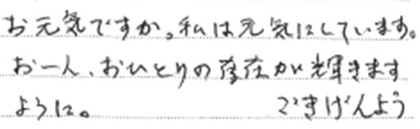 お元気ですか。私は元気にしています。
お一人、おひとりの存在が輝きます
ように。 ごきげんよう